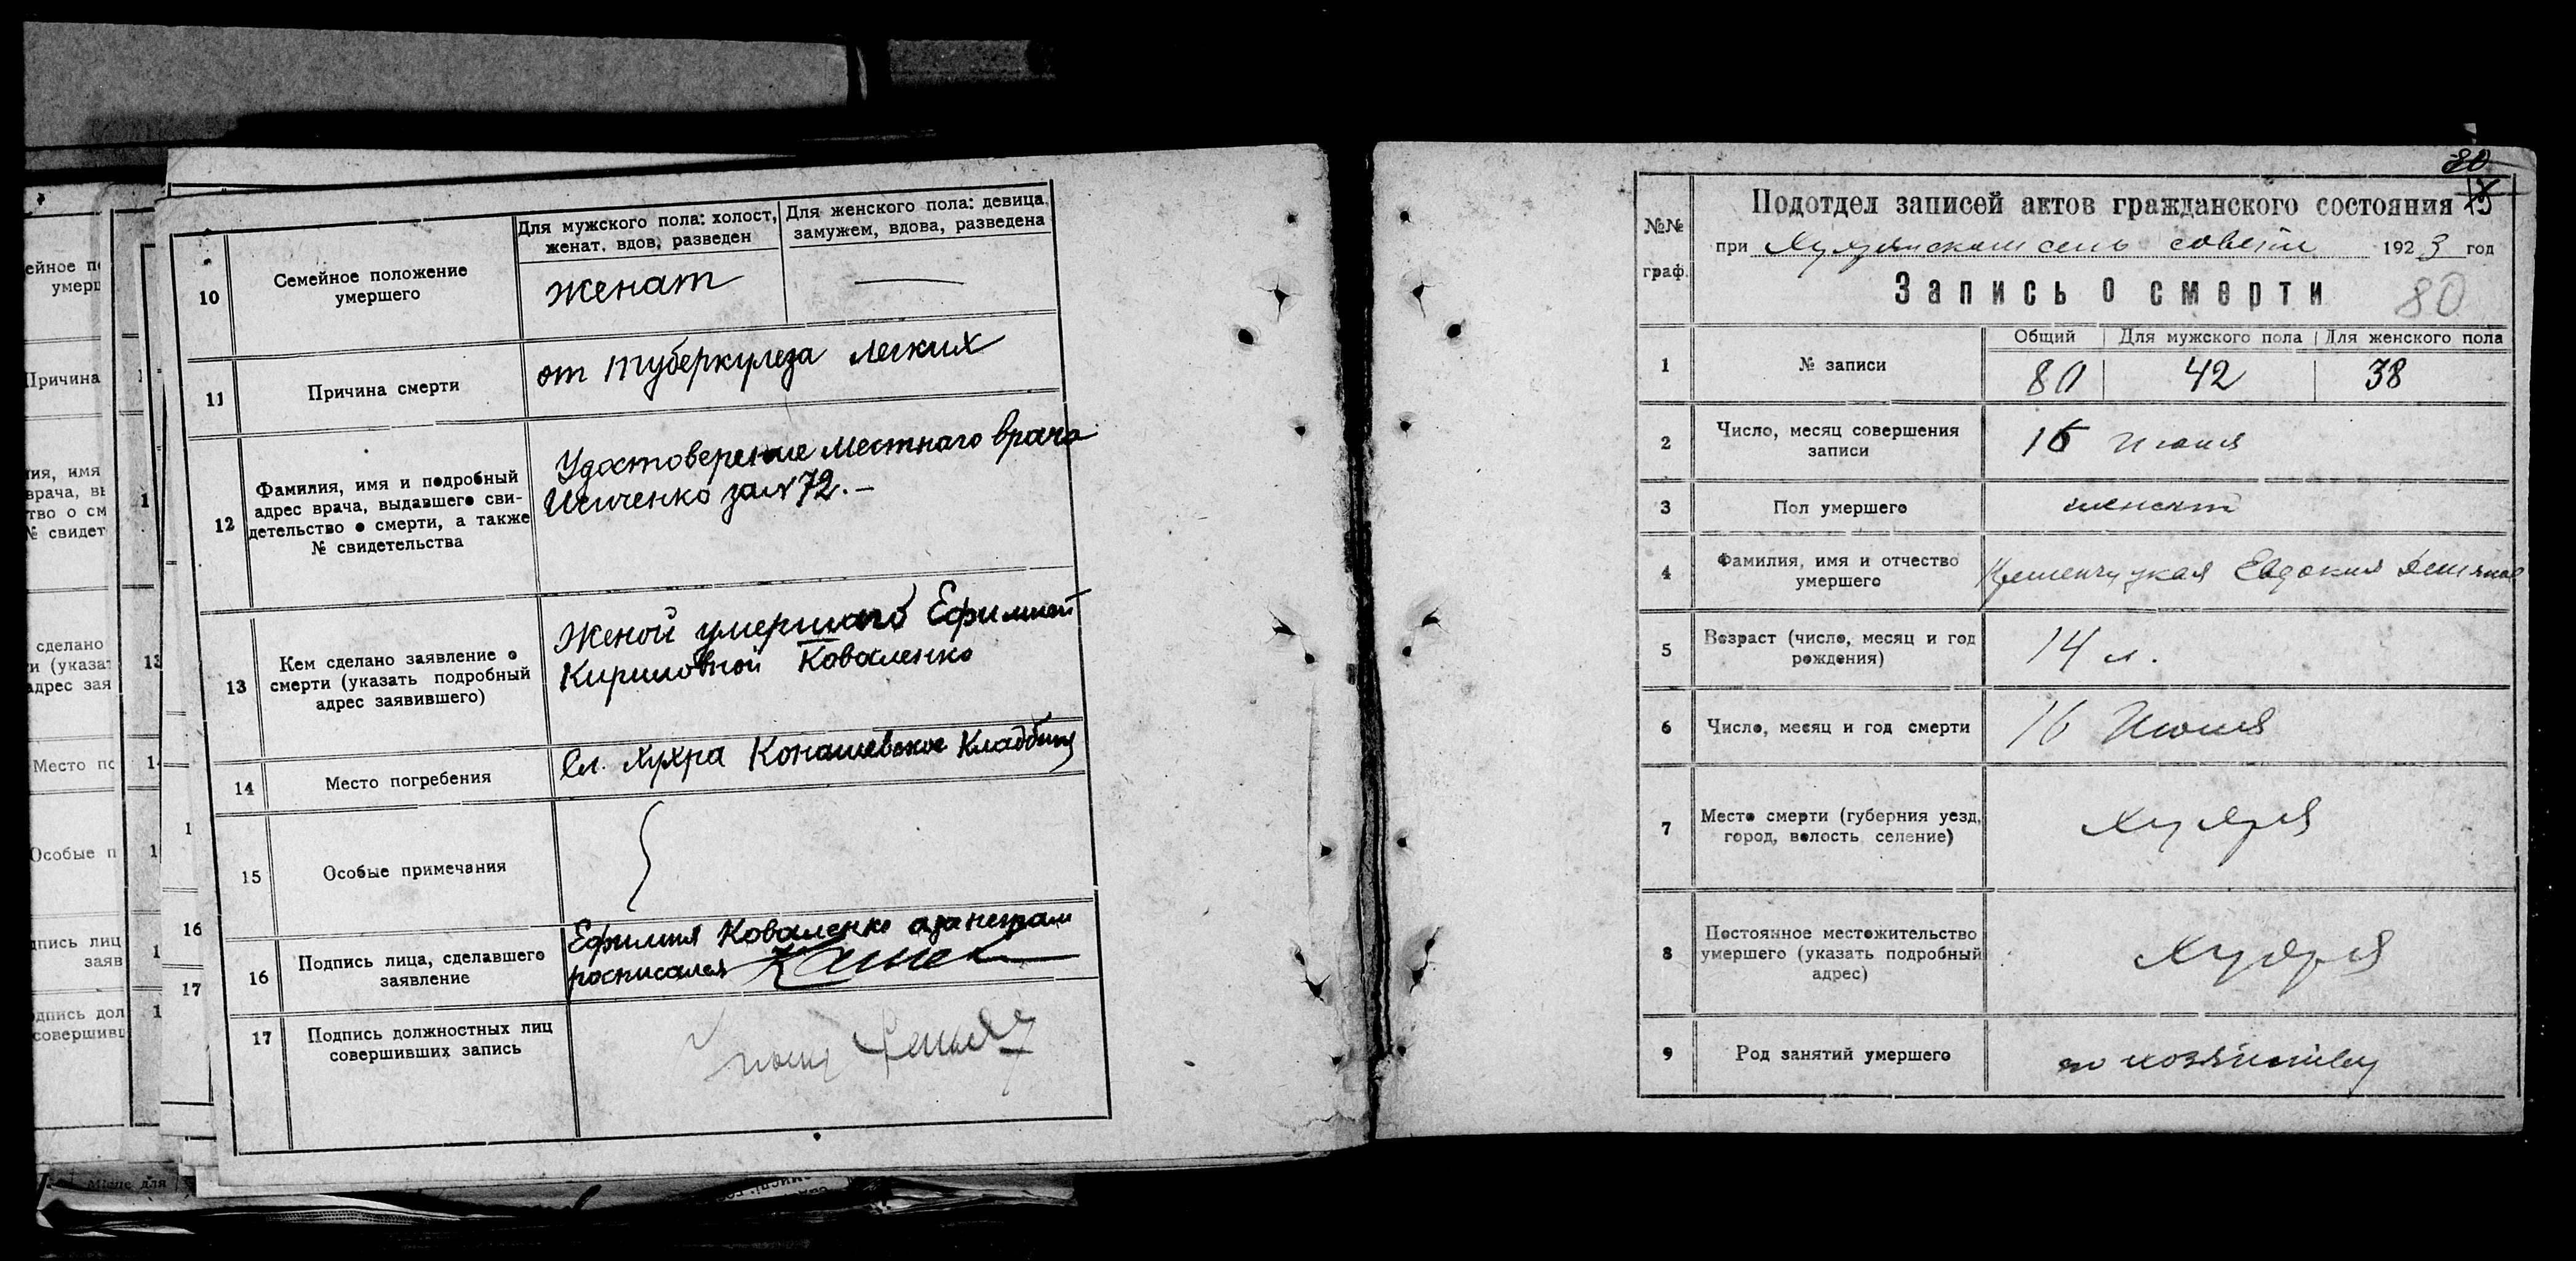 10
Семейное положение
умершего
Для мужского пола: холост,
женат, вдов, разведен
Для женского пола: девица,
замужем, вдова, разведена
женат
11
Причина смерти
от туберкулеза легких
12
Фамилия, имя и подробный
адрес врача, выдавшего сви-
детельство о смерти, а также
№ свидетельства
Удостоверение местнаго врача
за № 72.-
13
Кем сделано заявление о
смерти (указать подробный
адрес заявившего)
Женой умершаго Ефимией
Кириловной Коваленко
14
Место погребения
Сл. Хухра Конашевское Кладбище
15
Особые примечания
16
Подпись лица, сделавшего
заявление
Ефимия Коваленко а за неграм
росписался
17
Подпись должностных лиц
совершивших запись
80
№№
граф.
Подотдел записей актов гражданского состояния
при Хухрянском сель совети 1923 год
Запись о смерти
80
1
№ записи
Общий
Для мужского пола
Для женского пола
80
42
38
2
Число, месяц совершения
записи
16 Июня
3
Пол умершего
женский
4
Фамилия, имя и отчество
умершего
Кременчуцкая Евдокия Демьянов
5
Возраст (число, месяц и год
рождения)
14 л.
6
Число, месяц и год смерти
16 Июня
7
Место смерти (губерния уезд,
город, волость, селение)
Хухря
8
Постоянное местожительство
умершего (указать подробный
адрес)
Хухря
9
Род занятий умершего
по хозяйству